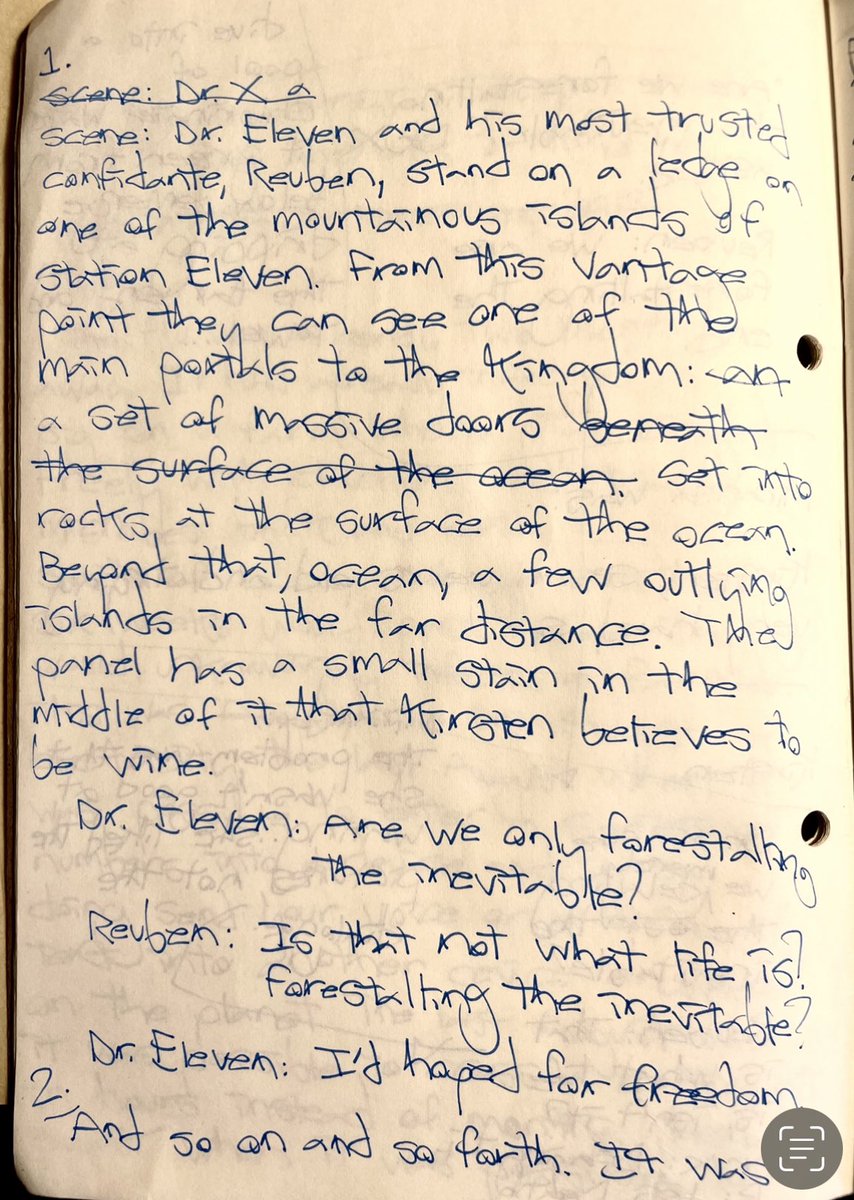 1.
scene: Dr. X a
scene: Dr. Eleven and his most trusted
confidante, Reuben, stand on a ledge on
one of the mountainous islands of
station Eleven. From this vantage
point they can see one of the
main portals to the Kingdom: an
a set of massive doors beneath
the surface of the ocean. set into
rocks, at the surface of the ocean.
Beyond that, ocean, a few outlying
islands in the far distance. The
panel has a small stain in the
middle of it that Kirsten believes to
be wine.
Dr. Eleven: Are we only forestalling
the inevitable?
Reuben: Is that not what life is?
Forestalling the inevitable?
Dr. Eleven: I'd hoped for freedom
2.
And so on and so forth. It was